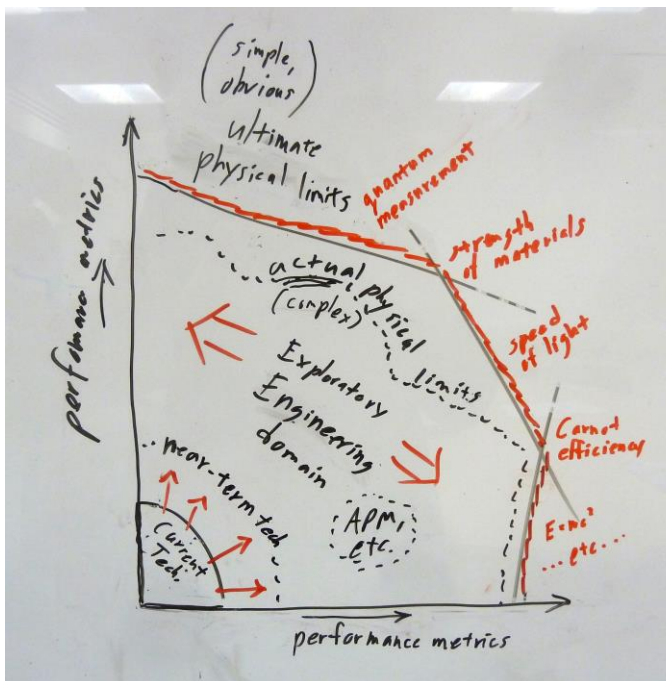 (simple,
obvious)
ultimate
physical limits
quantum
measurement
strength
of materials
speed
of light
Carnot
efficiency
E=mc²
... etc. ...
actual physical limits
(complex)
Exploratory
Engineering
domain
near-term tech
Current
Tech.
APM,
etc.
performance metrics
performance metrics